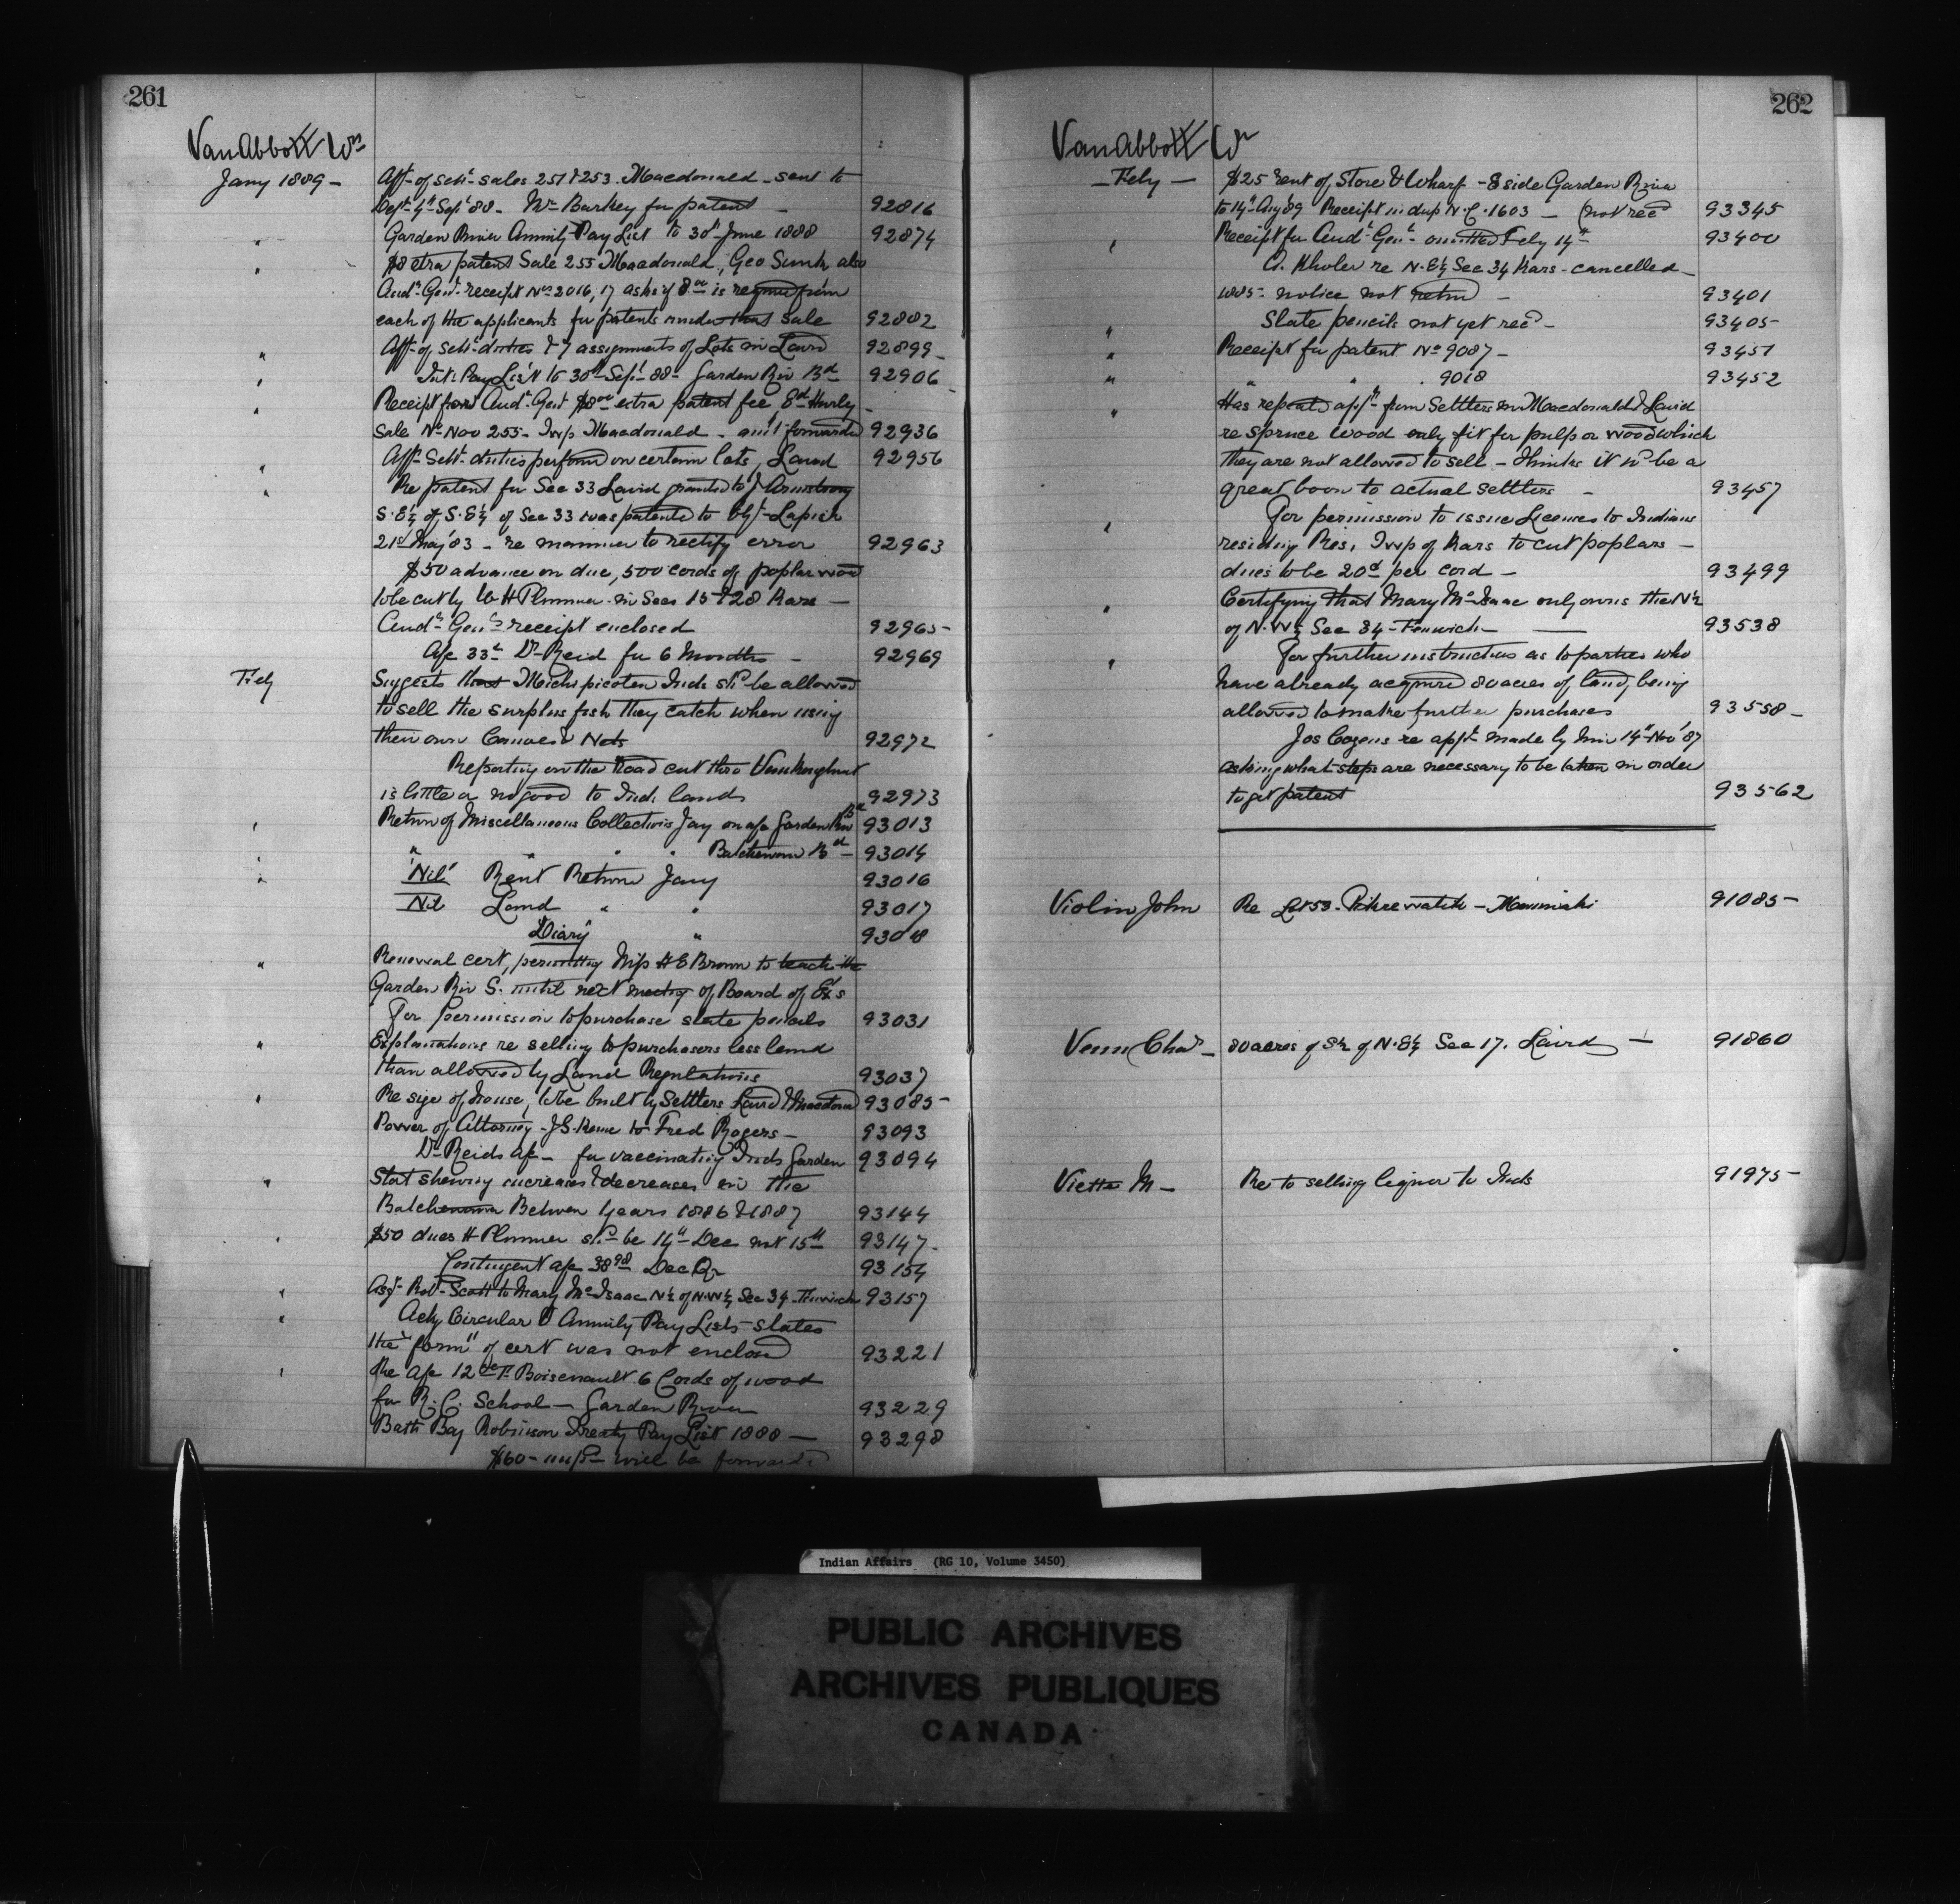 261
VanAbbott Wm
Jany 1889 - Aff- of sett- sales 251 & 253. Macdonald - sent to
Dept 4th Sept 88 - Mr Barkey for patent - 92816
" Garden River Annuity Pay List to 30th June 1888 92874
" $8 extra patent Sale 255 Macdonald, Geo also
Audr Genl receipt Nos 2016, 17 asks if 8.00 is required from
each of the applicants for patents under that sale 92882
" Aff- of sett- duties & 7 assignments of Lots in Laird 92899
" Int- Pay List to 30th Sept 88 - Garden Riv Bd 92906
" Receipt from Audr Genl $8.00 extra patent fee, Ed Hurly -
Sale No 255 - Twp Macdonald - amt forwarded 92936
" Aff- Sett- duties performd on certain lots, Laird 92956
" Re patent for Sec 33 Laird granted to J Armstrong
S.E¼ of S.E¼ of Sec 33 was patented to
21st May 83 - re manner to rectify error 92963
$50 advance on due, 500 cords of poplar wood
to be cut by W H Plummer in Secs 15 & 28 Kars -
Audr Genls receipt enclosed 92965
A/c 33 Dr Reid for 6 Months - 92969
Feby Suggests that Michipicoten Inds shd be allowed
to sell the surplus fish they catch when using
their own Canoes & Nets 92972
Reporting on the Road cut thro Vankoughnet
is little or no good to Ind. lands 92973
' Return of Miscellaneous Collections Jany on a/c Garden Riv Bd 93013
" " " " " Batchewana Bd - 93014
" 'Nil' Rent Return Jany 93016
Nil Land " " 93017
"Diary" " 93018
" Renewal cert, permitting Miss H E Brown to teach the
Garden Riv S. until next meeting of Board of Exs
For permission to purchase slate pencils 93031
" Explanations re selling to purchasers less land
than allowed by Land Regulations 93037
' Re size of house, to be built by Settlers Laird & Macdonald 93085
Power of Attorney - J.G. to Fred Rogers - 93093
Dr Reids a/c - for vaccinating Inds Garden 93094
" Stat shewing increases & decreases in the
Batchewana Between Years 1886 & 1887 93144
' $50 dues H Plummer shd be 14th Dec not 15th 93147
Contingent a/c 38.98 Dec Qr 93154
' Asgt Robt Scott to Mary McIsaac N½ of N.W¼ Sec 34 Fenwick 93157
" Ackg Circular & Annuity Pay Lists - states
the "form" of cert was not enclosed 93221
' Re a/c 12.00 T. Boissenault 6 Cords of wood
for R.C. School - Garden River 93229
Batch Bay Robinson Treaty Pay List 1888 - 93298
$60 - will be forwarded
262
VanAbbott Wm
- Feby - $25 rent of Store & Wharf - E side Garden River
to 14th Aug 89 Receipt in dup N.C. 1603 - (not recd 93345
' Receipt for Audr Genl - omitted Feby 14th 93400
A. Kholer re N.E¼ Sec 34 Kars - cancelled -
1885 - notice not retnd - 93401
" Slate pencils not yet recd - 93405
" Receipt for patent No 9087 - 93451
" " " " 9018 93452
" Has repeated appn from Settlers in Macdonald & Laird
re spruce wood only fit for pulp or wood which
they are not allowed to sell - thinks it wd be a
great boon to actual settlers - 93457
' For permission to issue Licenses to Indians
residing Res, Twp of Kars to cut poplars -
dues to be 20c per cord - 93499
' Certifying that Mary McIsaac only owns the N½
of N.W¼ Sec 34 - Fenwick - 93538
' For further instructions as to parties who
have already acquired 80 acres of land, being
allowed to make further purchases 93558
Jos Cozens re appn made by him 14th Nov '87
asking what steps are necessary to be taken in order
to get patent 93562
Violin John Re Lot 53. - 91085
Venn Chas - 80 acres of S½ of N.E¼ Sec 17. Laird - 91860
Viette M - Re to selling liquor to Inds 91975
Indian Affairs (RG 10, Volume 3450)
PUBLIC ARCHIVES
ARCHIVES PUBLIQUES
CANADA